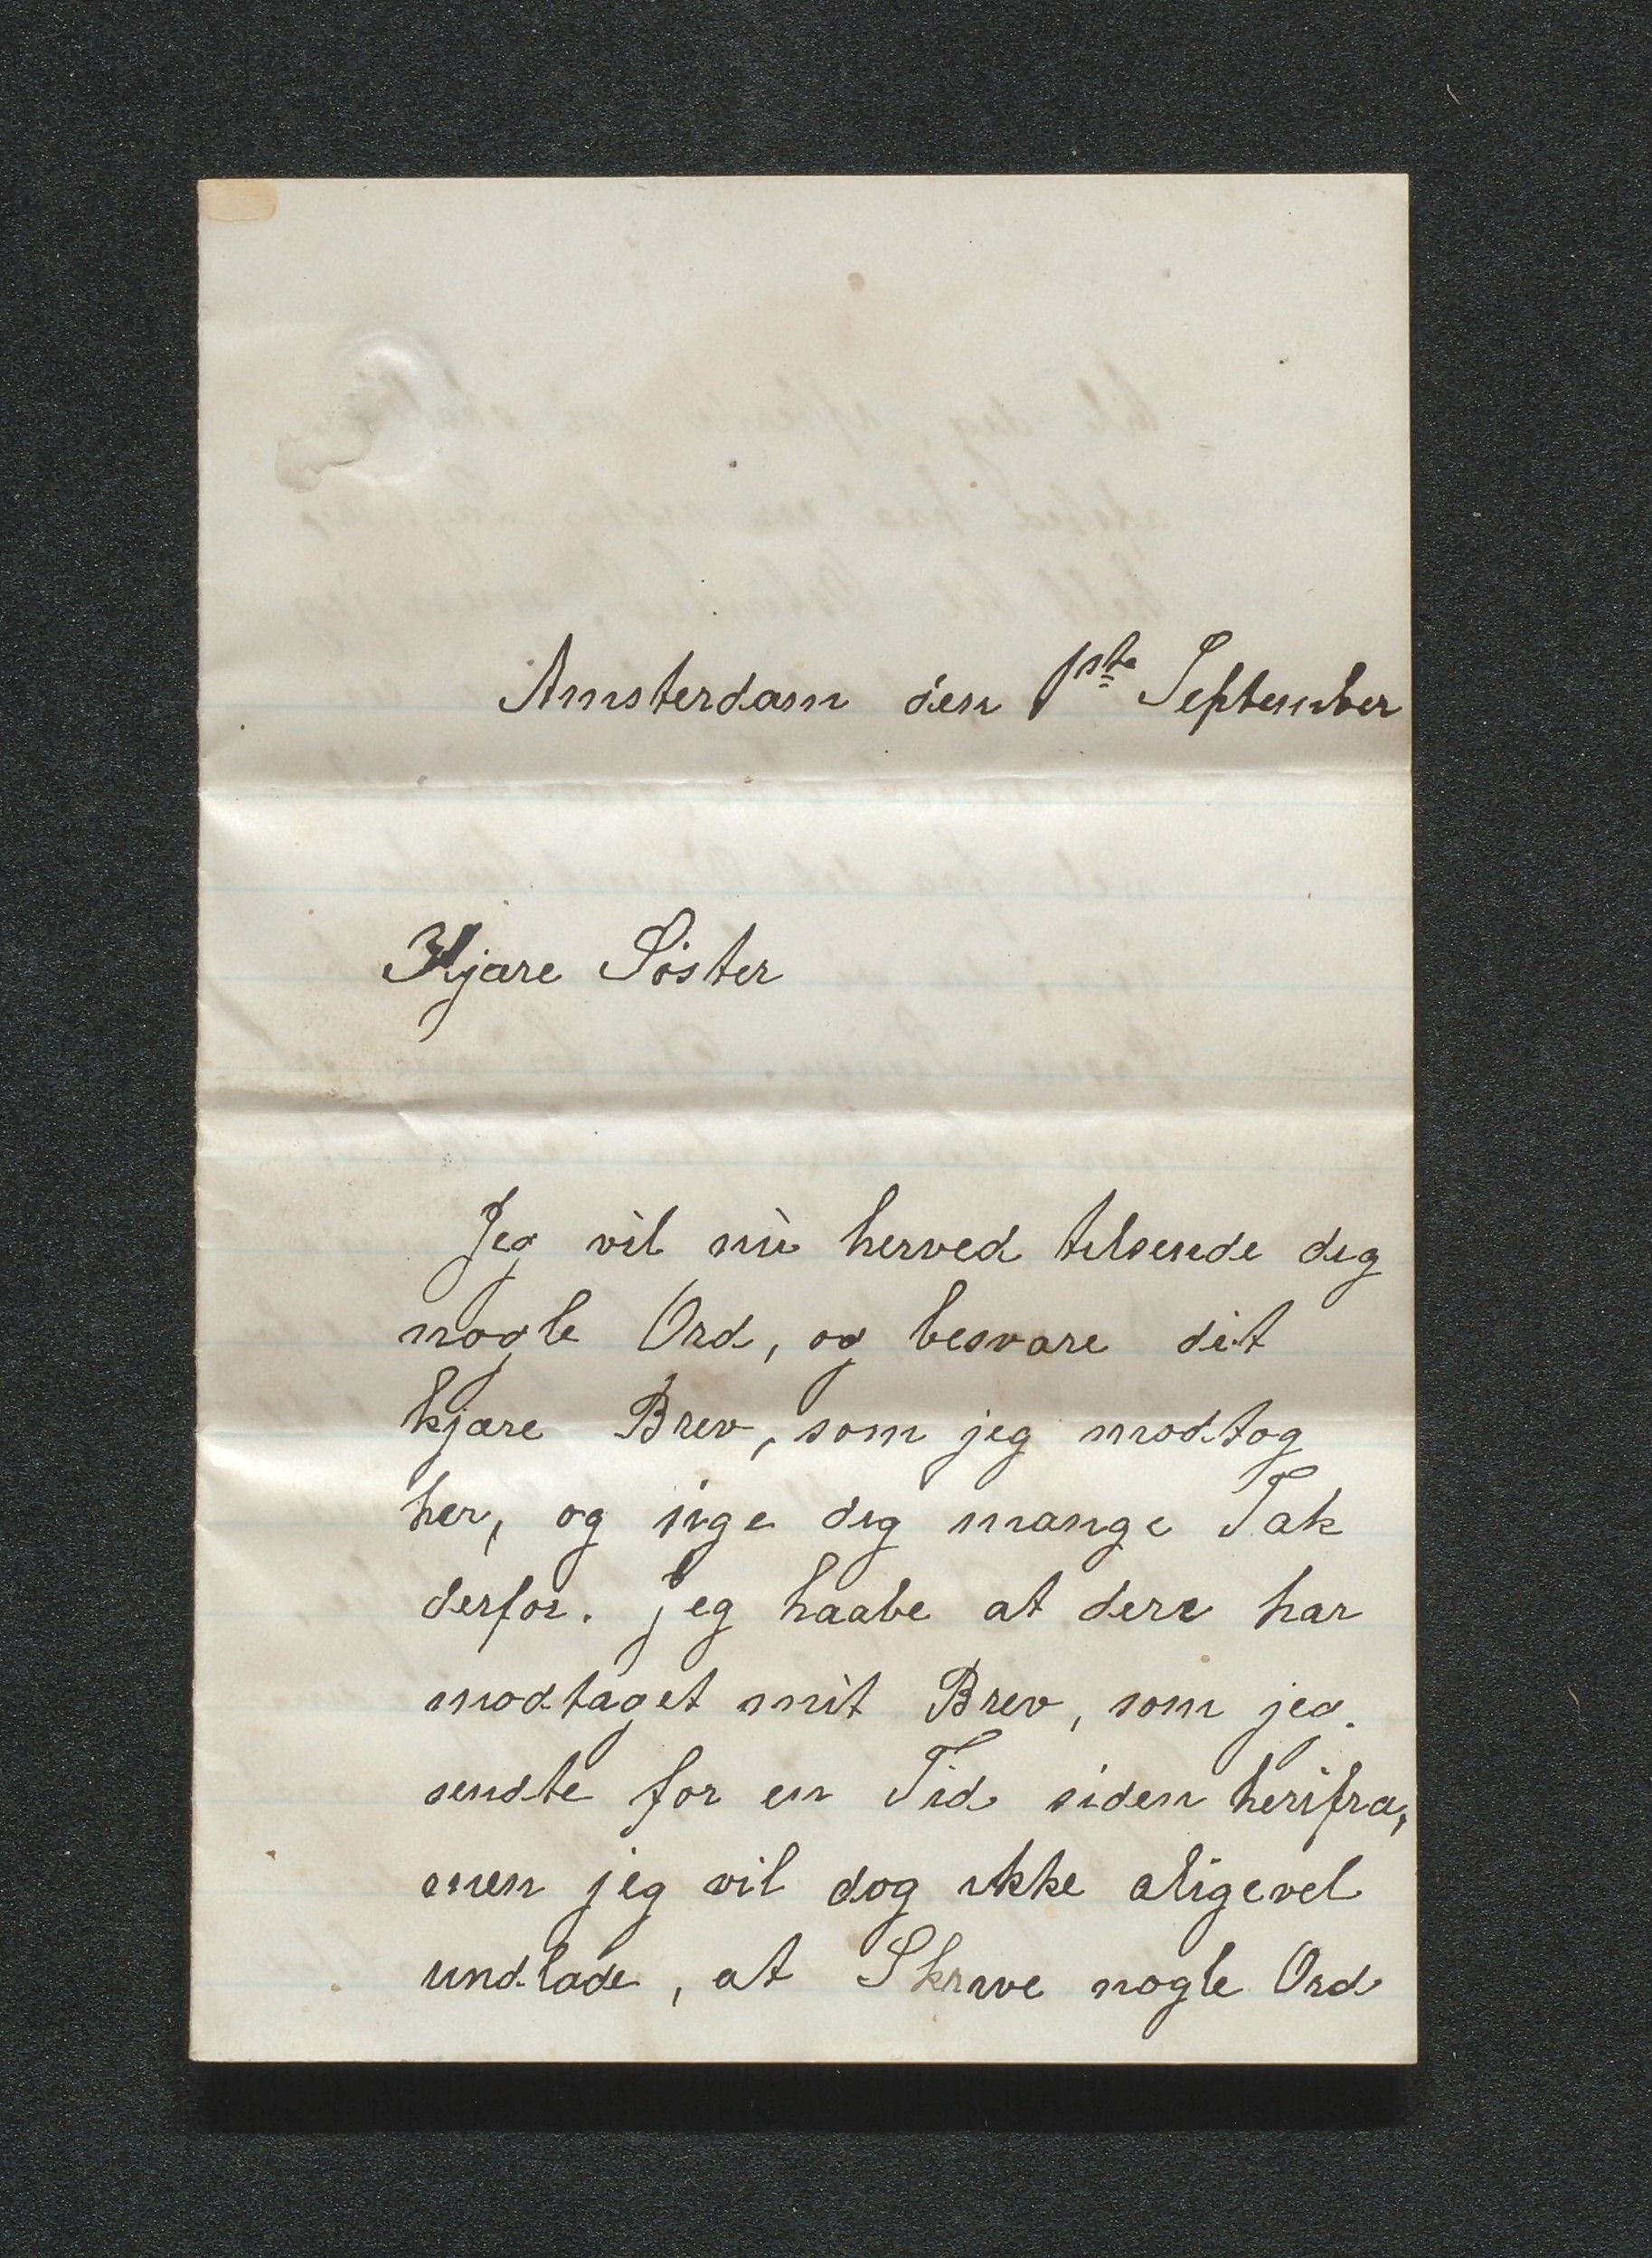 Amsterdam den 1ste September
Kjære Söster
Jeg vil nu herved tilsende dig
nogle Ord, og besvare dit
kjære Brev, som jeg modtog
her, og sige dig mange Tak
derfor. jeg haabe at dere har
modtaget mit Brev, som jeg.
sendte for en Tid siden herifra,
men jeg vil dog ikke aligevel
undlade, at Skrive nogle Ord